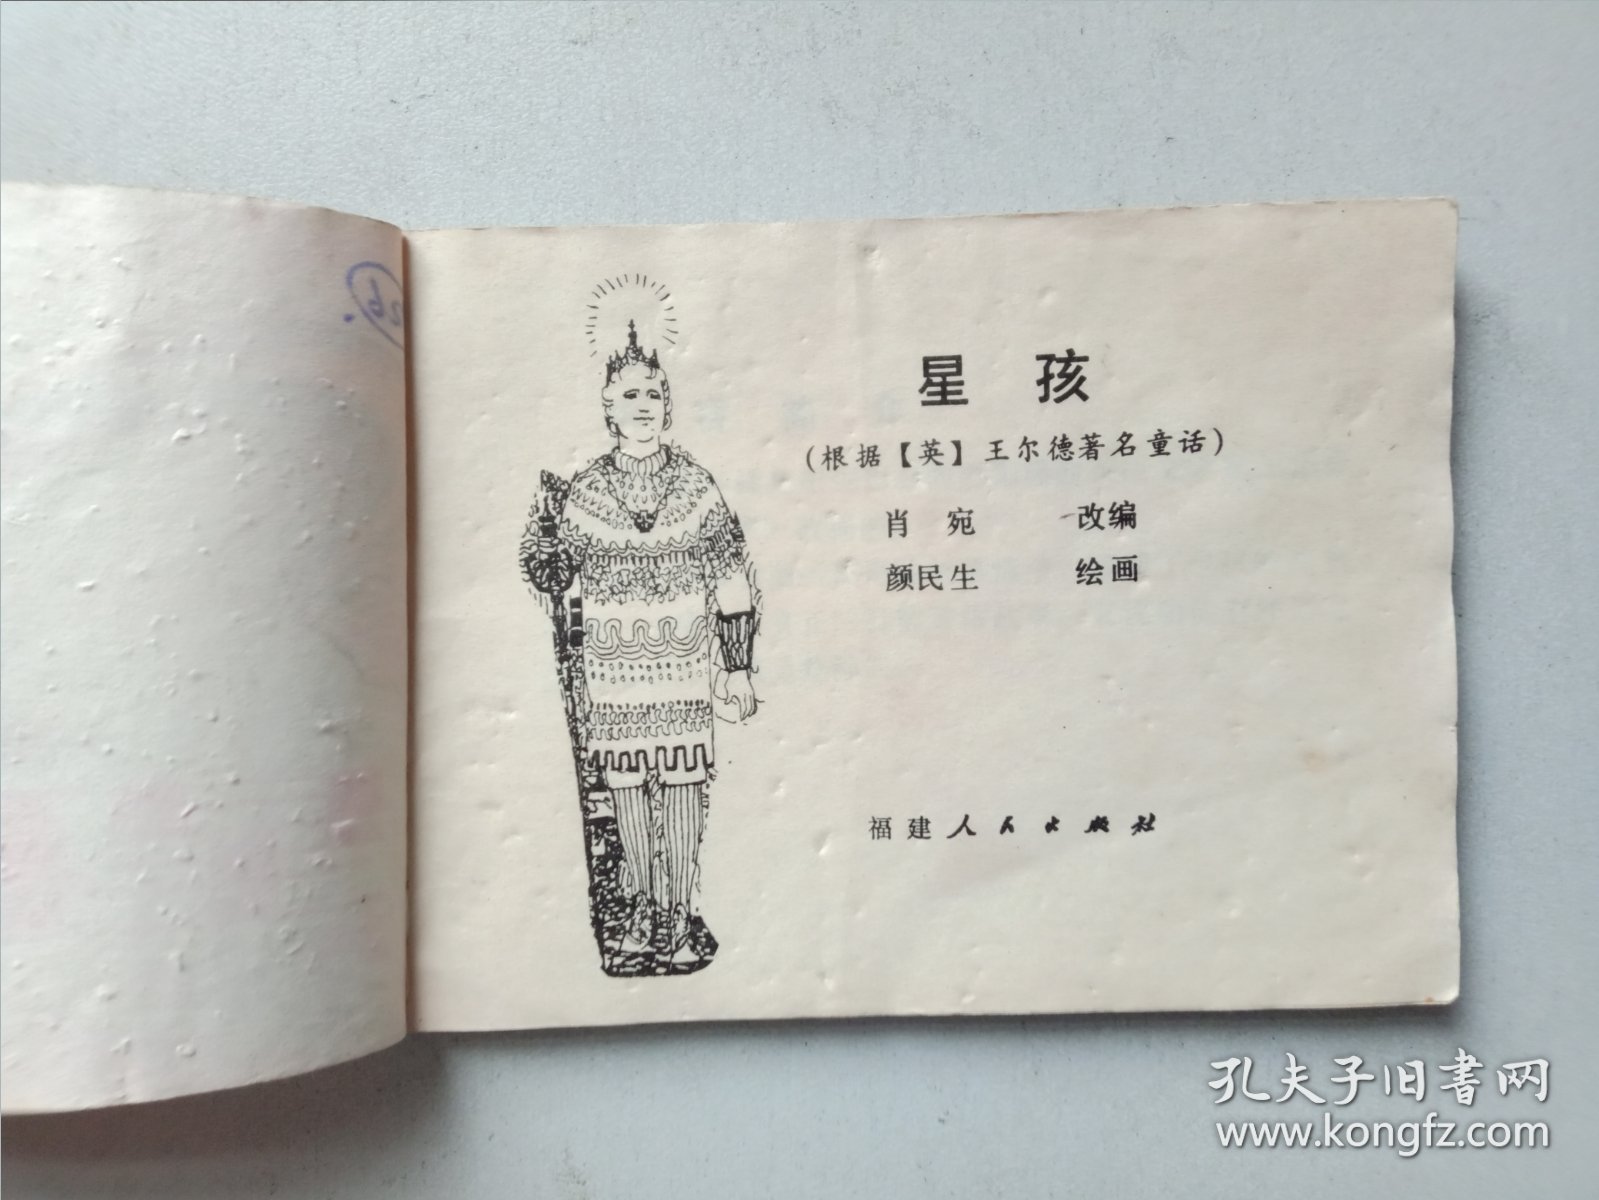 星孩
(根据【英】王尔德著名童话)
肖宛 改编
颜民生 绘画
福建人民出版社
孔夫子旧书网
www.kongfz.com